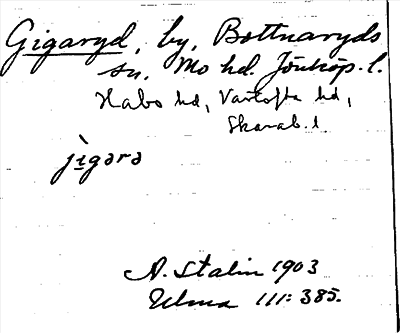 Gigaryd, by, Bottnaryds
sn, Mo hd. Jönköp. l.
Habo hd, Vartofta hd,
Skarab. l
jìgərə
A. Stalin 1903
Ulma 111: 385.